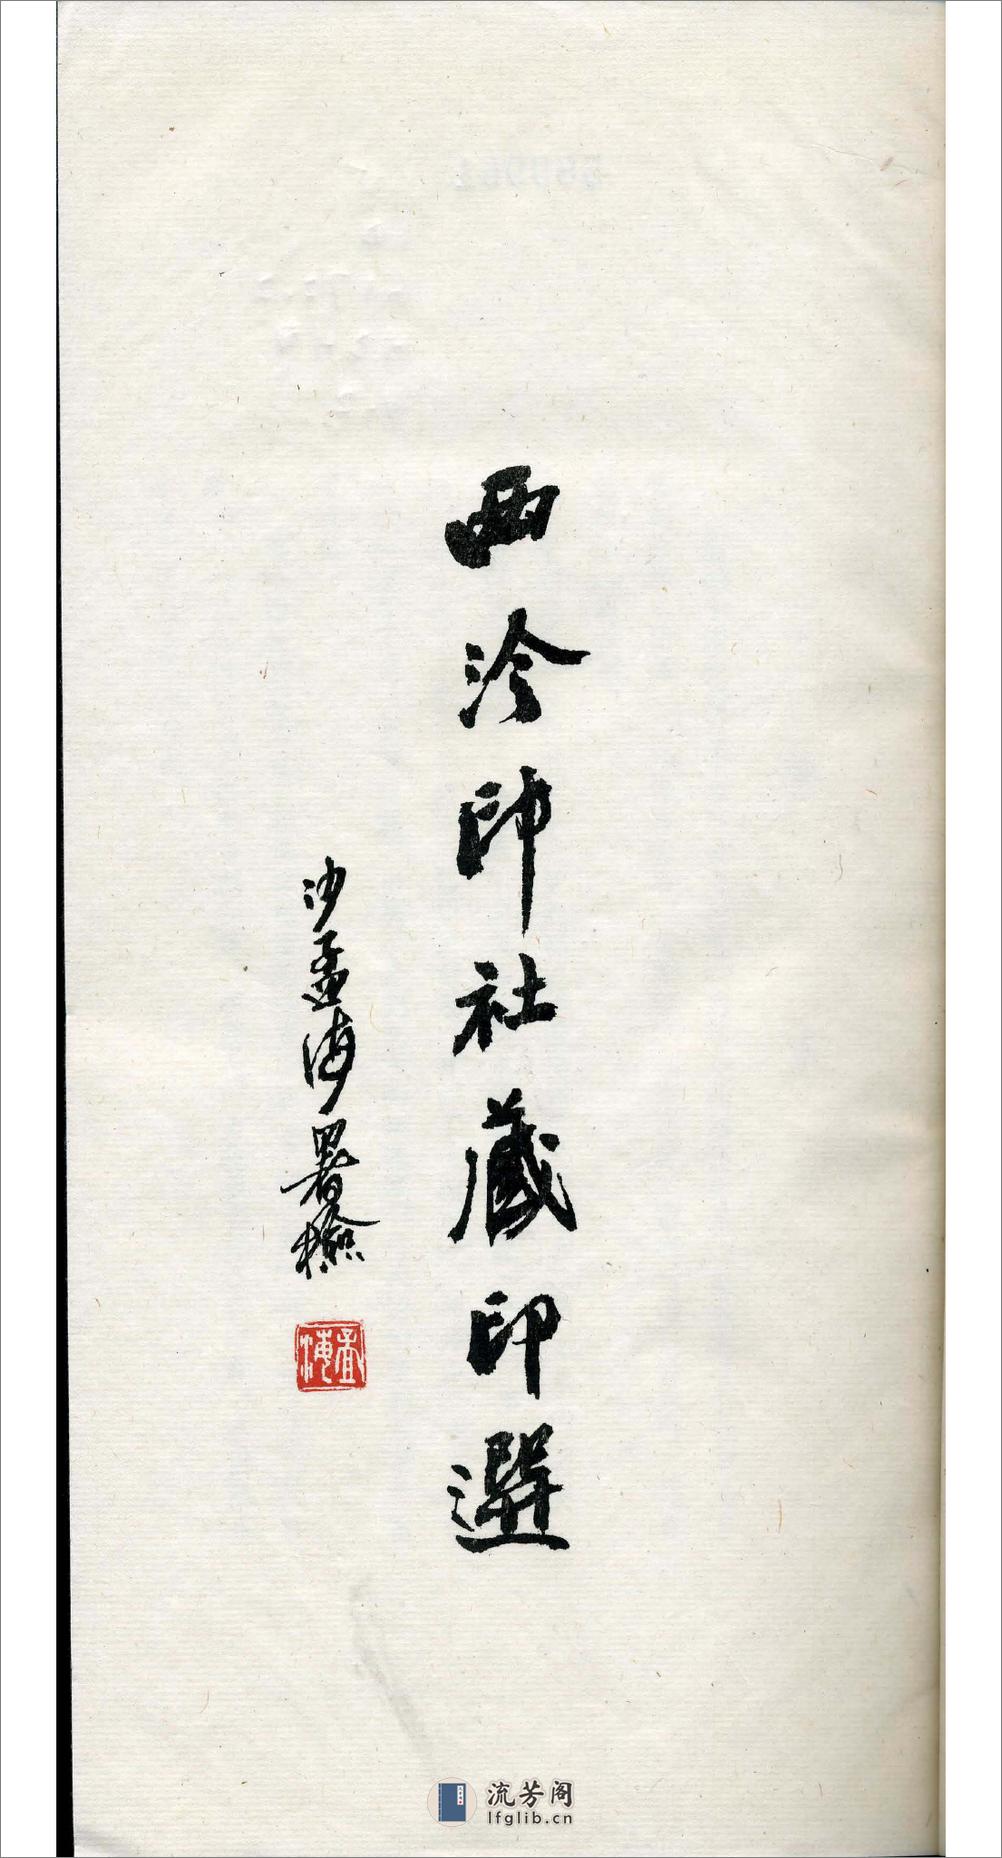 西泠印社藏印選
沙孟海署檢
孟海
流芳阁
lfglib.cn